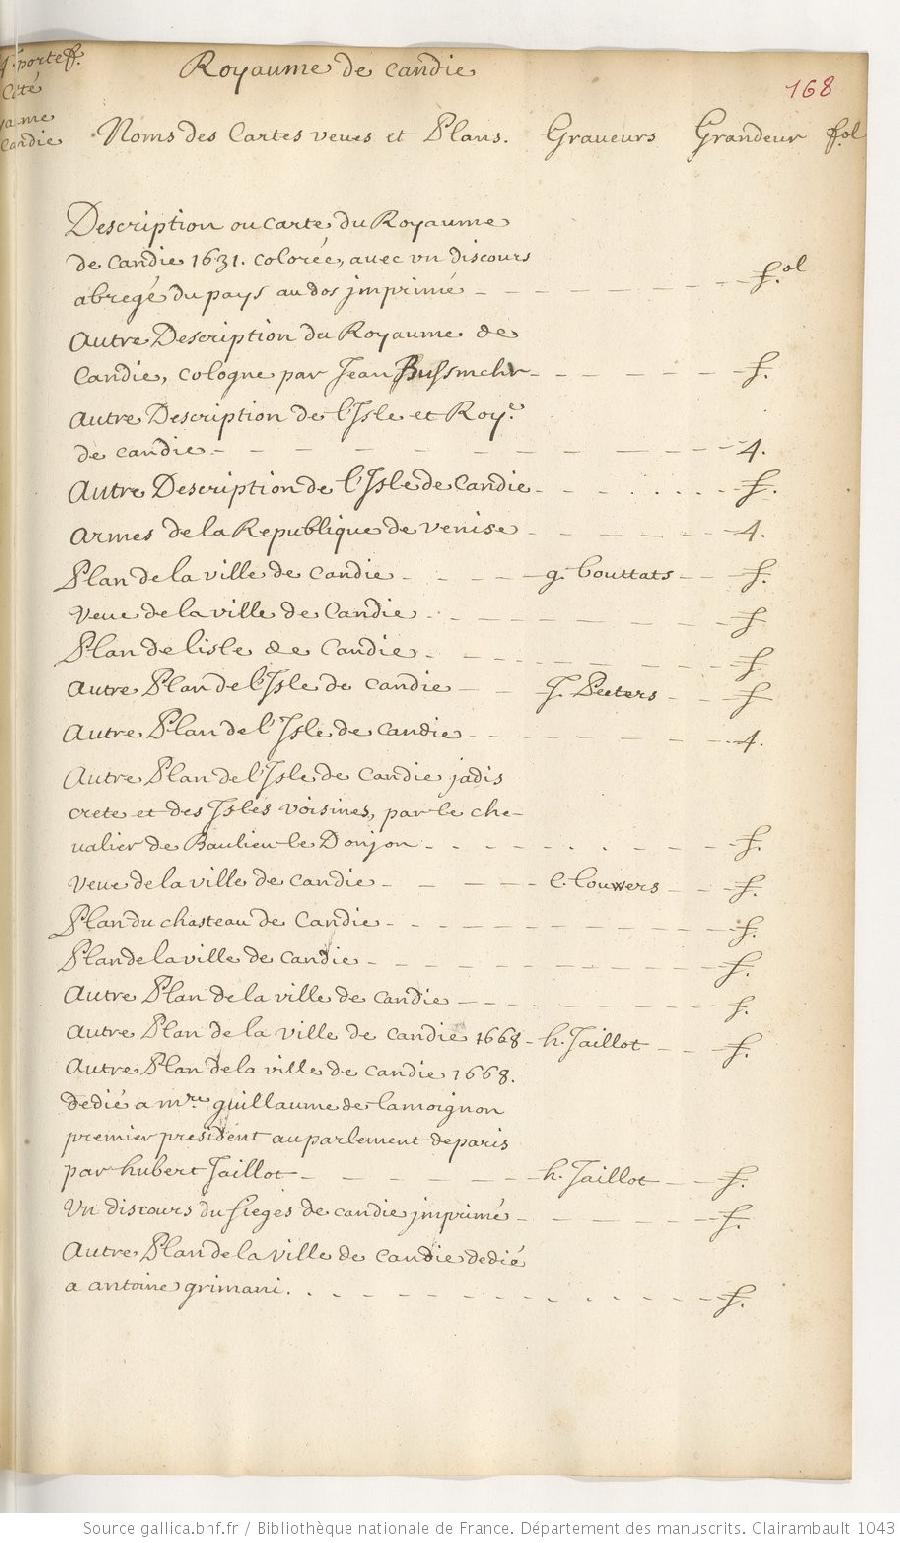 4.e porteff.
Cité
Candie
Royaume de candie
168
Noms des Cartes veues et Plans. Graueurs Grandeur fol
Description ou carte du Royaume
de candie 1631. colorée, avec vn discours
abregé du pays au dos jmprimé - - - - - - - f.ol
autre Description du Royaume de
Candie, cologne par Jean Bussmehr - - - - - f.
autre Description de l'Isle et Roy.e
de candie - - - - - - - - - 4.
autre Description de l'Isle de Candie - - - . . . . f.
armes de la Republique de venise - - - - - 4.
Plan de la ville de candie - - - - g. bouttats - - f.
veue de la ville de Candie - - - - - - - f
Plan de lisle de Candie - - - - - - - f
autre Plan de l'Isle de candie - - J. Peeters - - f
autre Plan de l'Isle de candie - - - - - - 4.
autre Plan de l'Isle de Candie jadis
crete et des Isles voisines, par le che-
ualier de Baulieu le Donjon - - - - - - f.
veue de la ville de candie - - - - c. louwers - - f.
Plan du chasteau de Candie - - - - - - - f.
Plan de la ville de candie - - - - - - - f.
autre Plan de la ville de candie - - - - - - f.
autre Plan de la ville de candie 1668 - h. Jaillot - - f.
autre Plan de la ville de candie 1668.
dedié a m.re guillaume de lamoignon
premier president au parlement de paris
par hubert Jaillot - - - - - h. Jaillot - - f.
vn discours du sieges de candie jmprimé - - - - - f.
autre Plan de la ville de candie dedié
a antoine grimani . . - - - - - - - f.
Source gallica.bnf.fr / Bibliothèque nationale de France. Département des manuscrits. Clairambault 1043